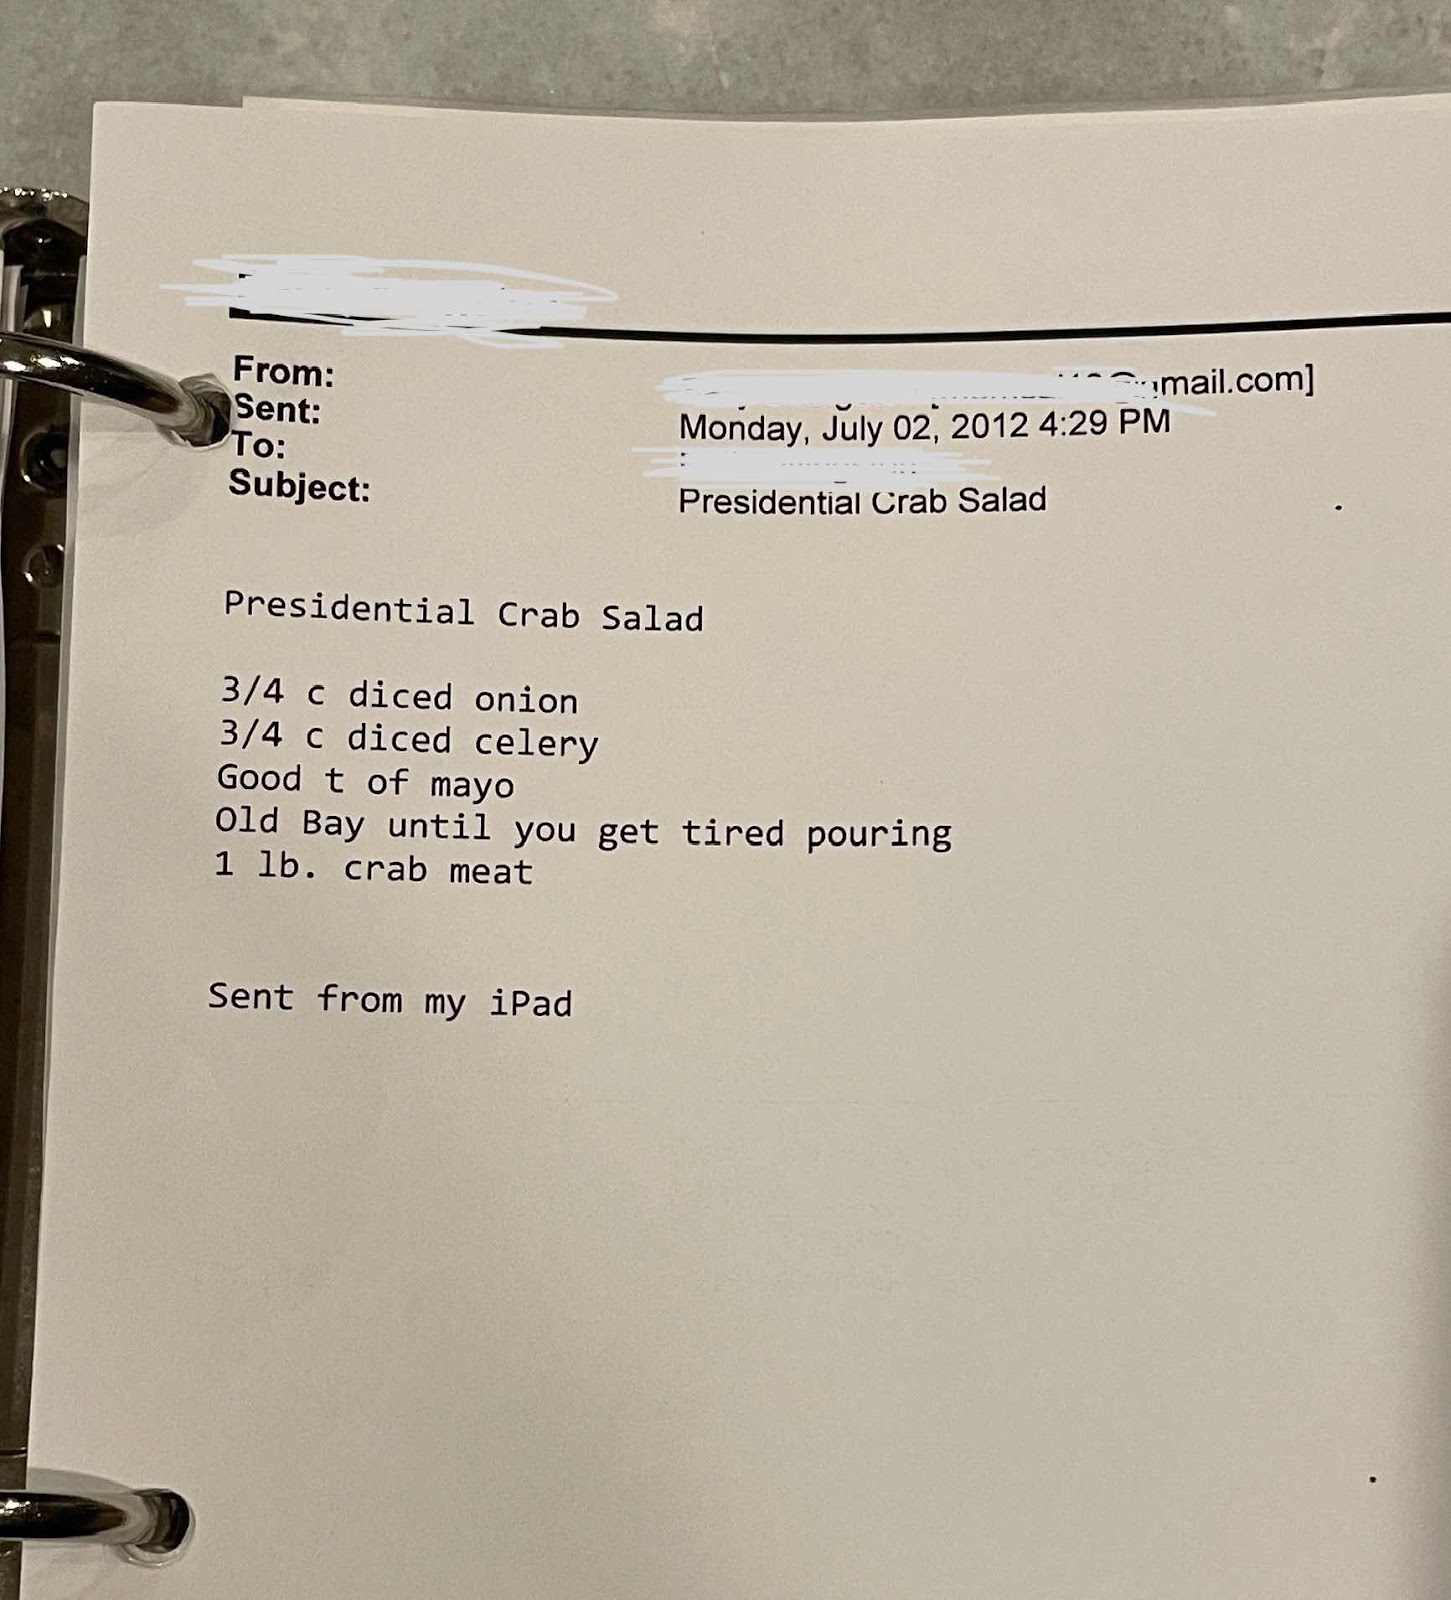 From:
mail.com]
Sent:
Monday, July 02, 2012 4:29 PM
To:
Subject:
Presidential Crab Salad
Presidential Crab Salad
3/4 c diced onion
3/4 c diced celery
Good t of mayo
Old Bay until you get tired pouring
1 lb. crab meat
Sent from my iPad